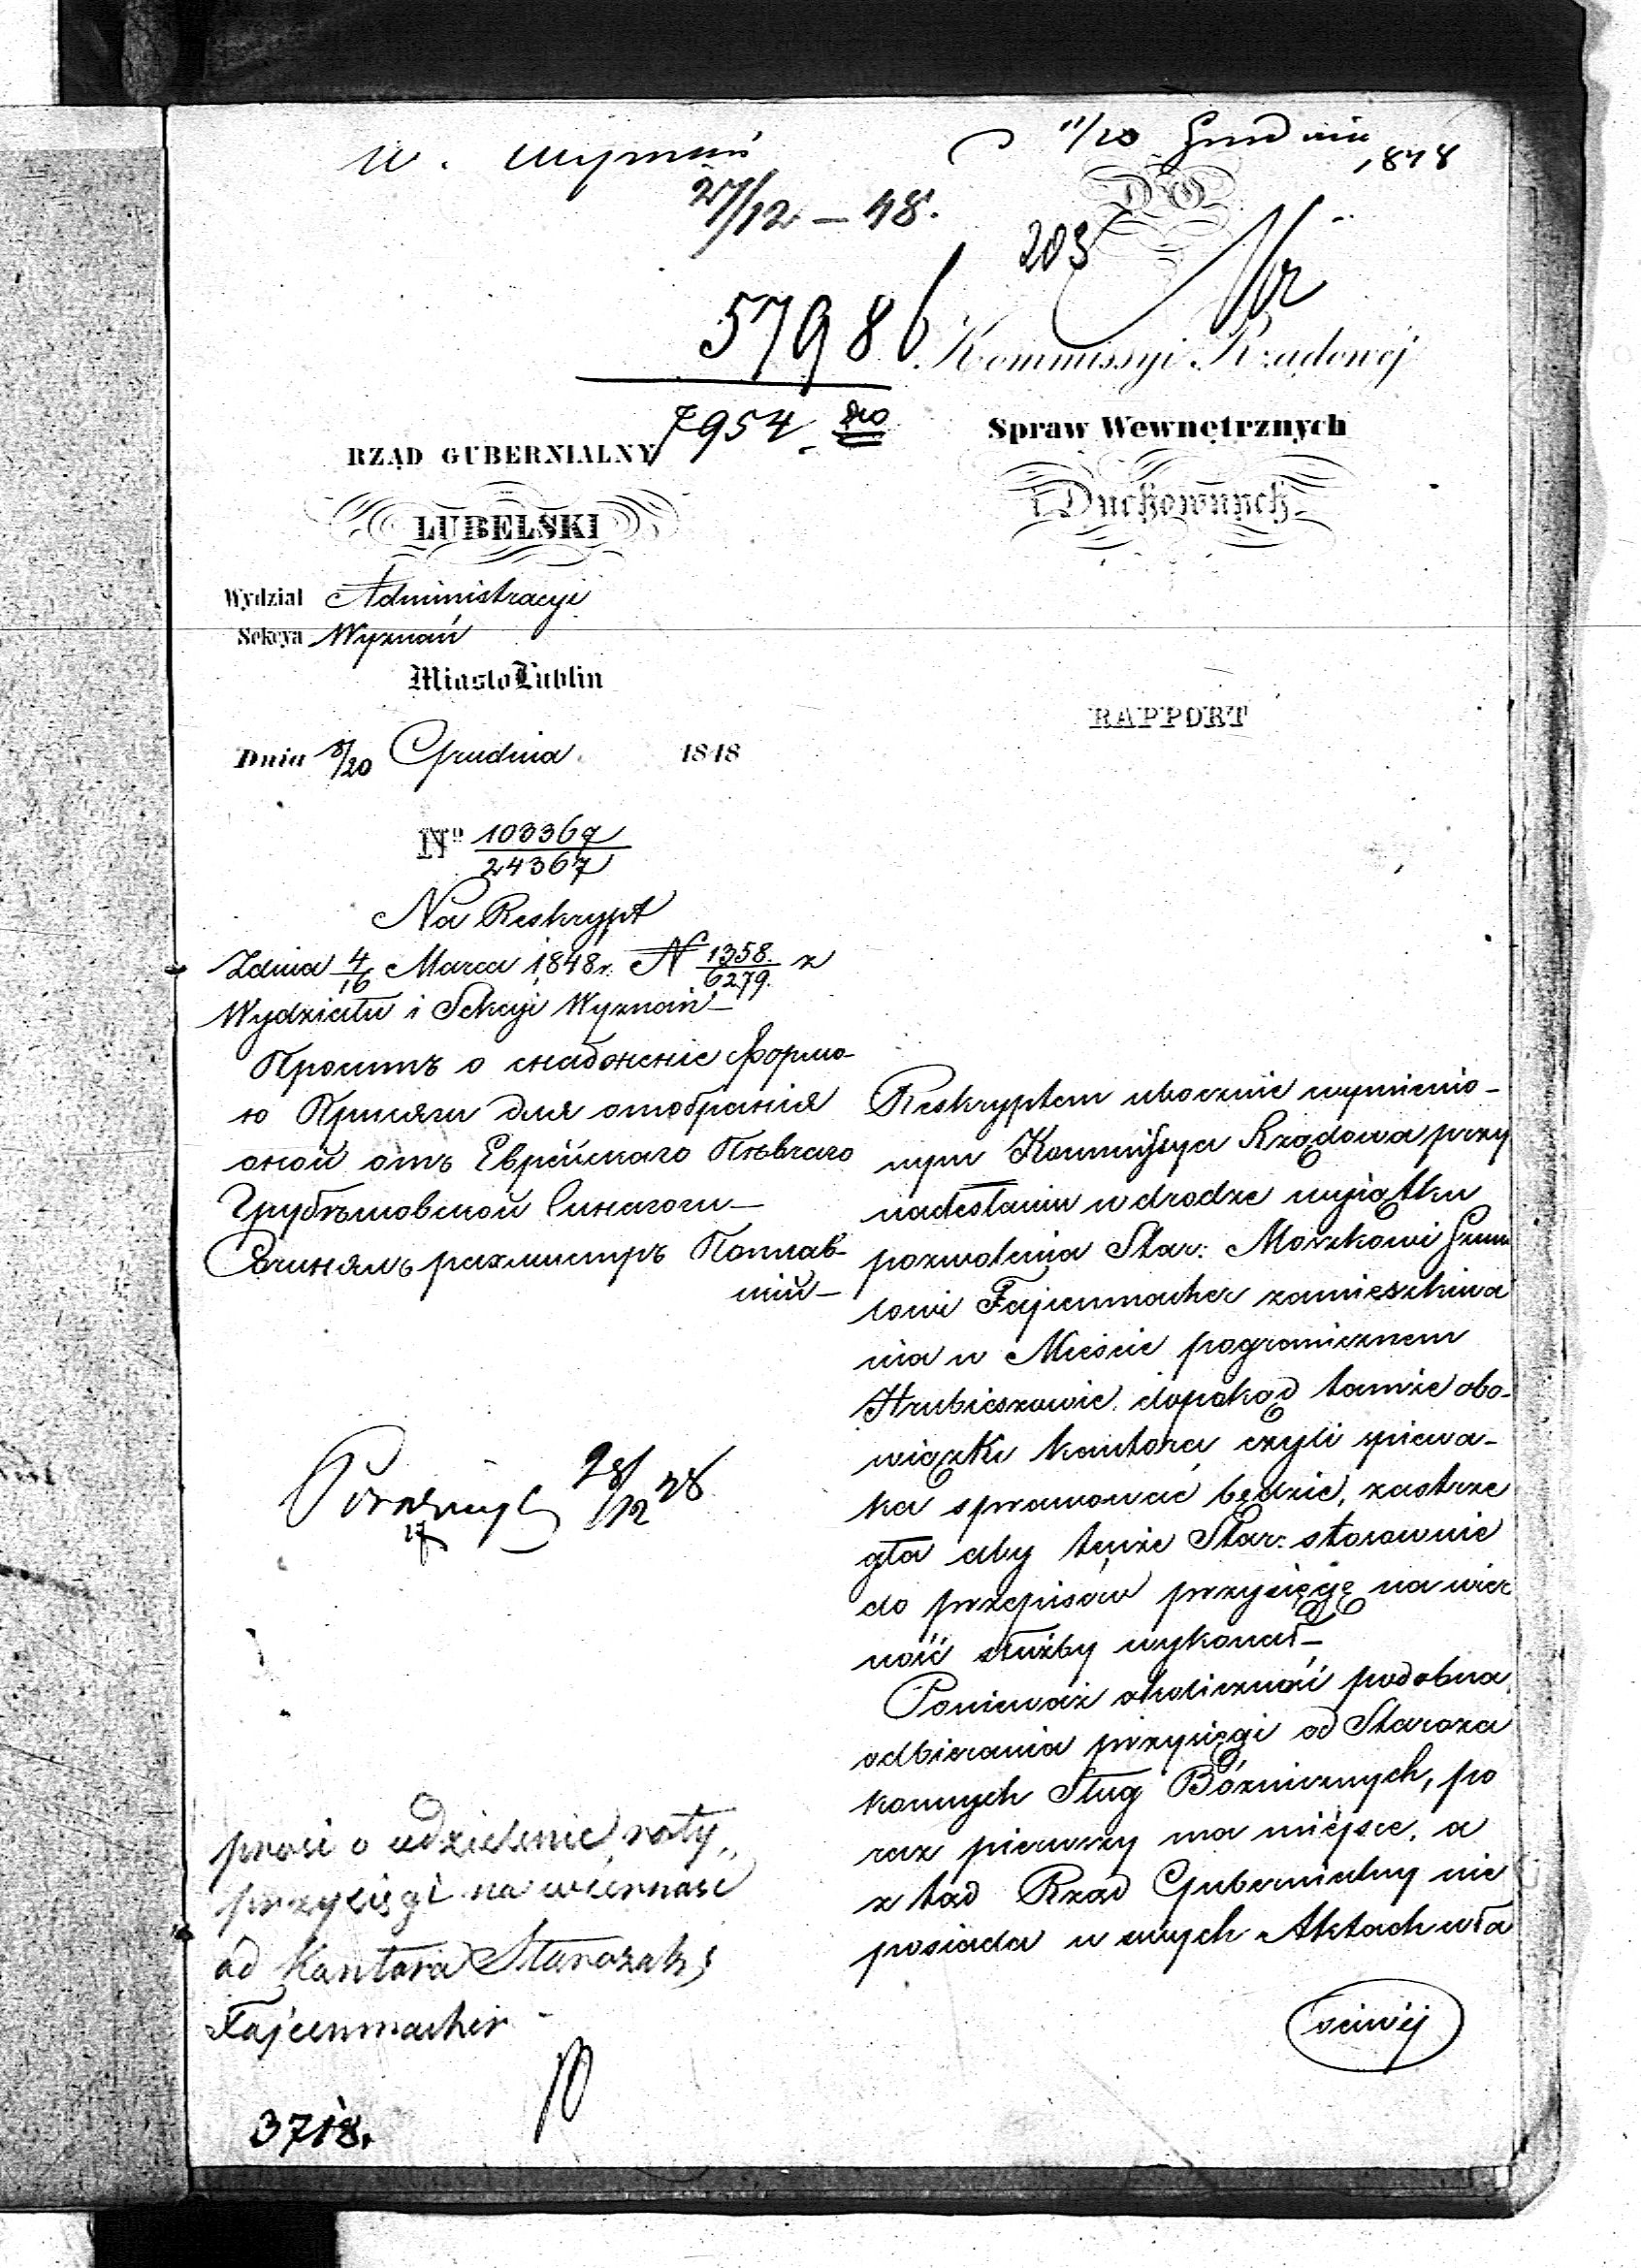 W. Wyznań
11/20 Grudnia
1848
27/12 – 48.
DO
203
57986
Kommissyi Rządowej
7954
Spraw Wewnętrznych
i Duchownych
RZĄD GUBERNIALNY
LUBELSKI
Wydział Administracyi
Sekcya Wyznań
Miasto Lublin
RAPPORT
Dnia 8/20 Grudnia 1848
No 103367/24367
Na Reskrypt
Zdnia 4/16 Marca 1848 r. N 1358./6279. z
Wydziału i Sekcyi Wyznań –
Проситъ о снабженіе формо-
ю Присяги для отобранія
оной отъ Еврейскаго Пѣвчаго
Грубешовской Синагоги –
Сочинялъ рахмистръ Поплав-
скій –
Reskryptem ubocznie wymienio-
nym Kommissya Rządowa przy
nadesłaniu w drodze wyjątku
pozwolenia Star: Moszkowi
lowi Fajcenmacher zamieszkiwa
nia w Mieście pogranicznem
Hrubieszowie dopokąd tamże obo-
wiązki kantora czyli śpiewa-
ka sprawować będzie, zastrze
gła aby tenże Star: stosownie
do przepisów przysięgę na wier
ność służby wykonał –
Ponieważ okoliczność podobna
odbierania przysięgi od Staroza
konnych Sług Bóżnicznych, po
raz pierwszy ma miéjsce, a
z tąd Rząd Gubernialny nie
posiada w swych Aktach wła
ściwéj
28/12 48
17
prosi o udzielenie roty
przysięgi na wierność
od Kantora Starozak:
Fajcenmacher
3718.